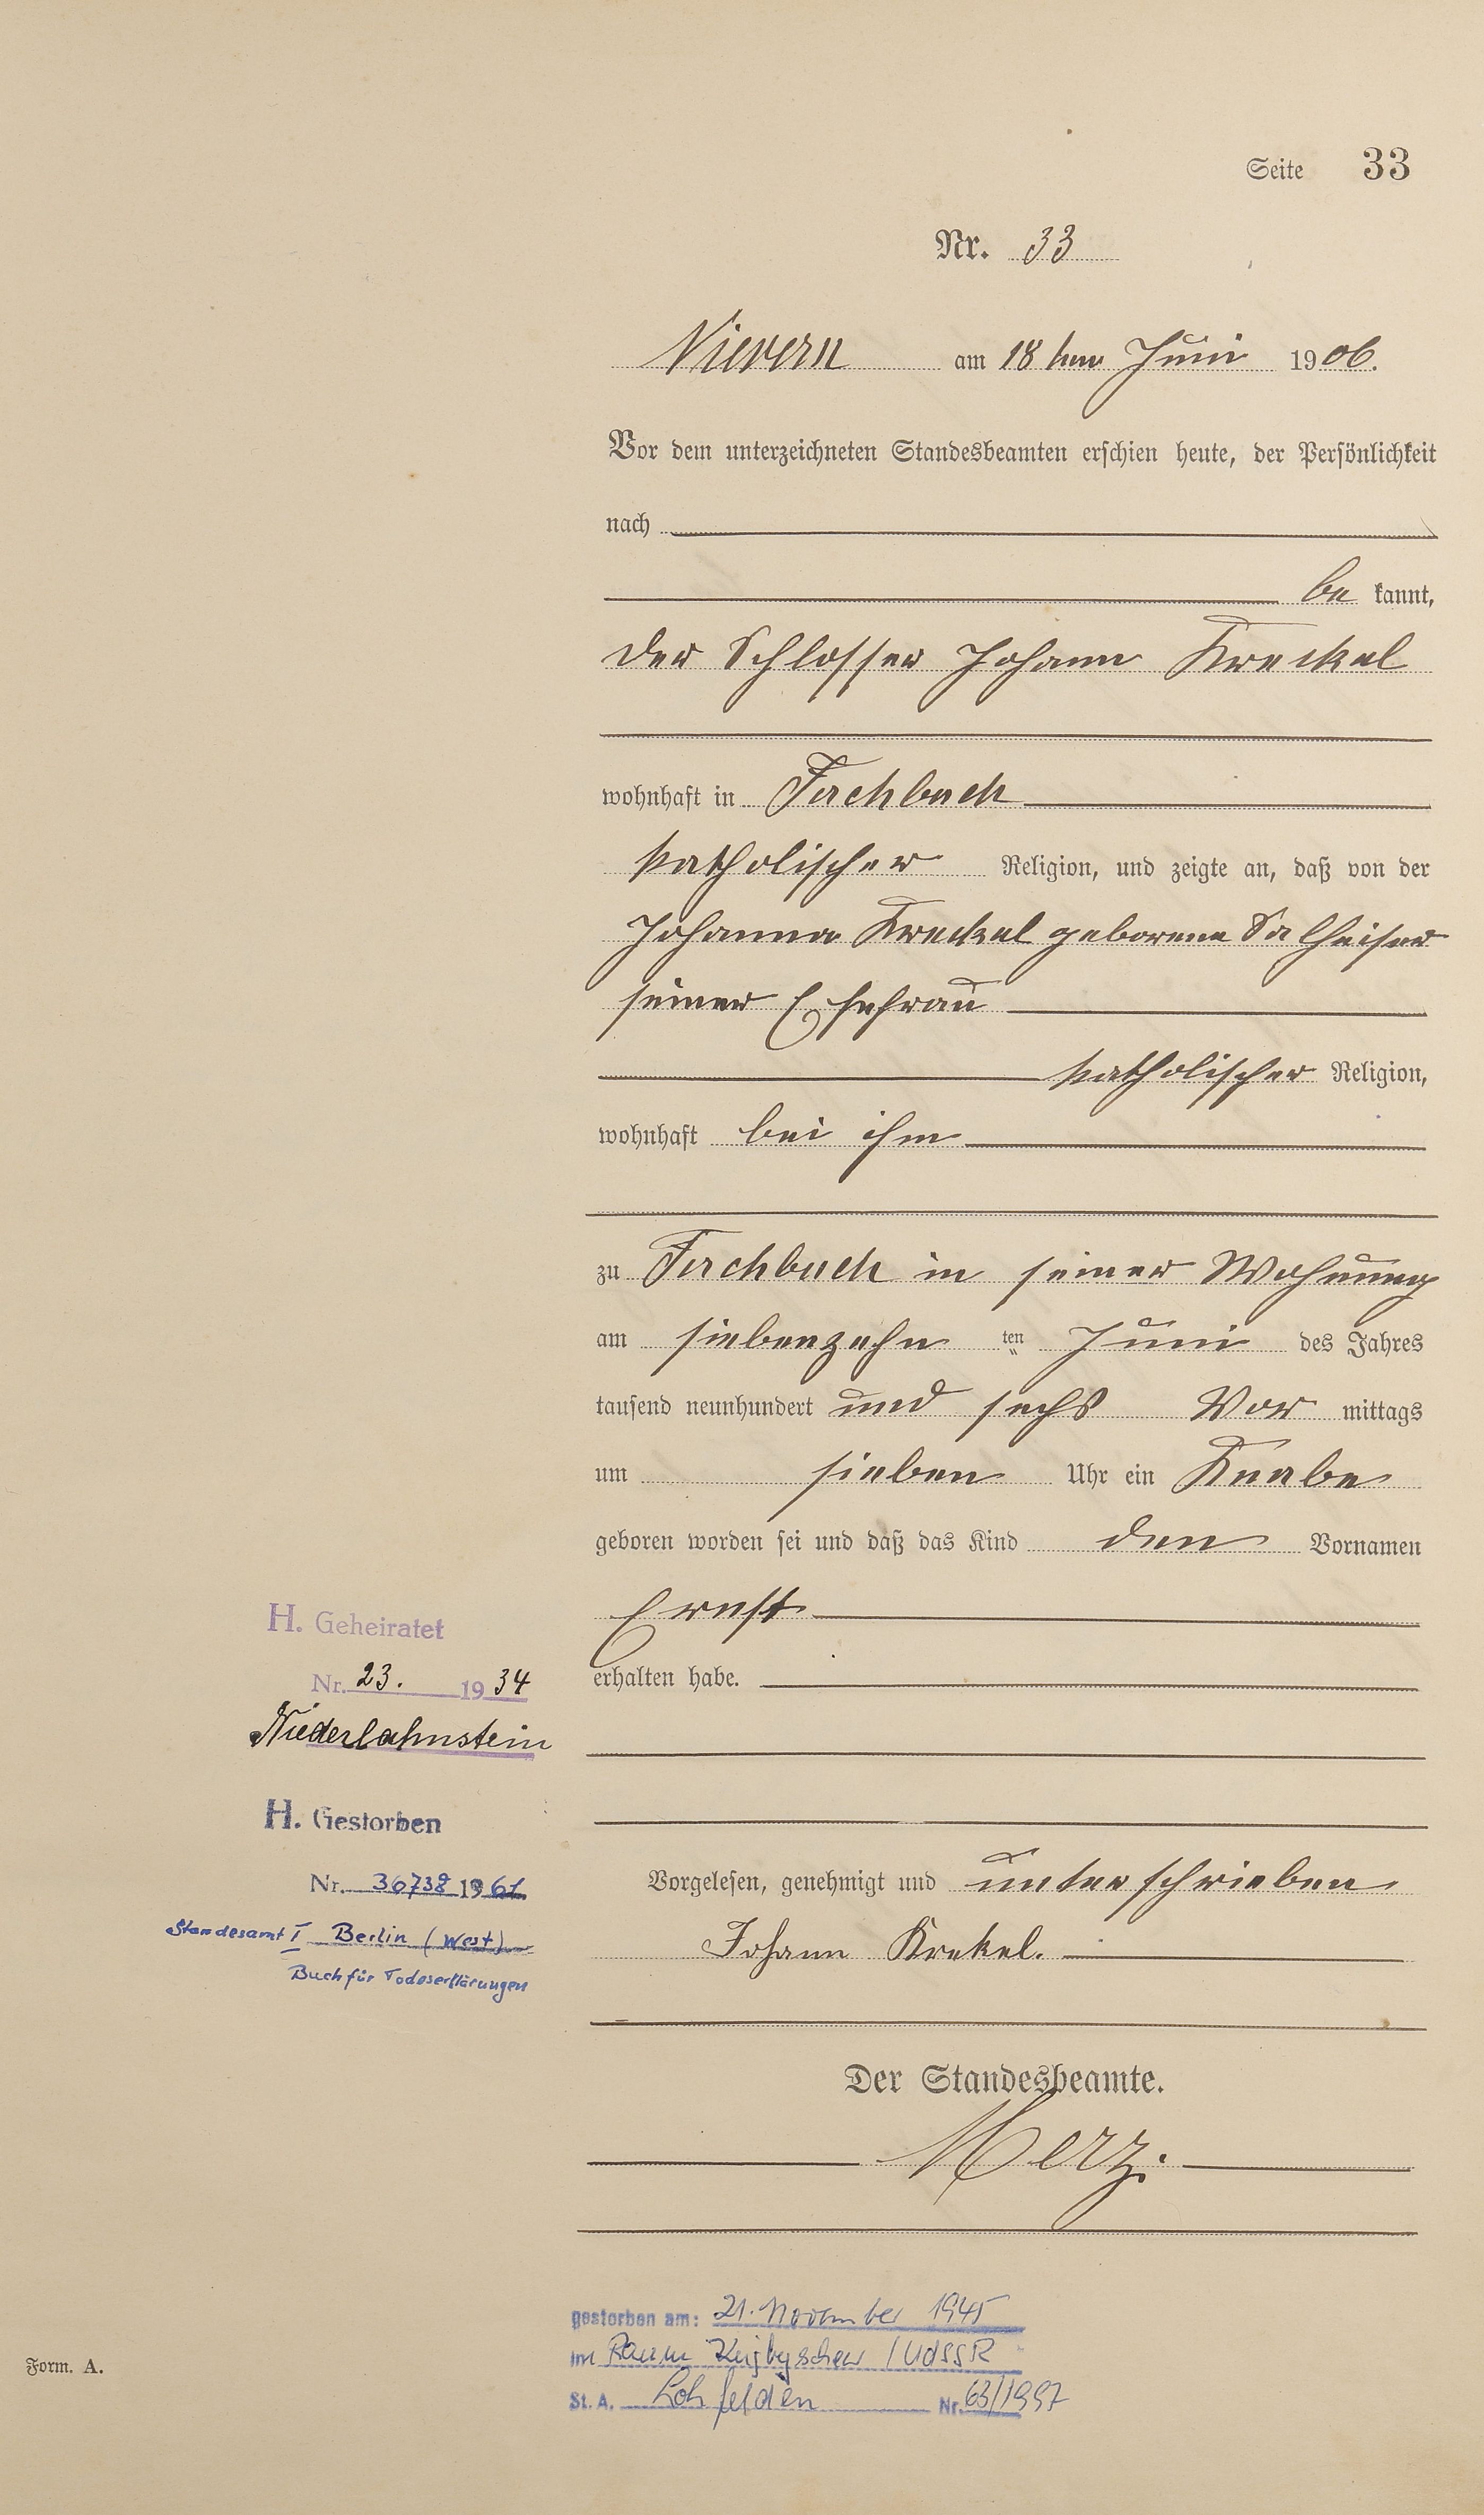 Seite 33
Nr. 33
Nievern am 18ten Juni 1906.
Vor dem unterzeichneten Standesbeamten erschien heute, der Persönlichkeit
nach
be kannt,
der Schlosser Johann Kreckel
wohnhaft in Fachbach
katholischer Religion, und zeigte an, daß von der
Johanna Kreckel geborene Salheiser
seiner Ehefrau
katholischer Religion,
wohnhaft bei ihm
zu Fachbach in seiner Wohnung
am siebenzehn ten Juni des Jahres
tausend neunhundert und sechs Vor mittags
um sieben Uhr ein Knabe
geboren worden sei und daß das Kind den Vornamen
Ernst
erhalten habe.
H. Geheiratet
Nr. 23. 1934
Niederlahnstein
H. Gestorben
Nr. 36738 1961
Standesamt I Berlin (West)
Buch für Todeserklärungen
Vorgelesen, genehmigt und unterschrieben
Johann Krekel.
Der Standesbeamte.
Merz.
gestorben am: 21. November 1945
im Raum Kujbyschew / UdSSR
St. A. Lohfelden Nr. 63/1997
Form. A.